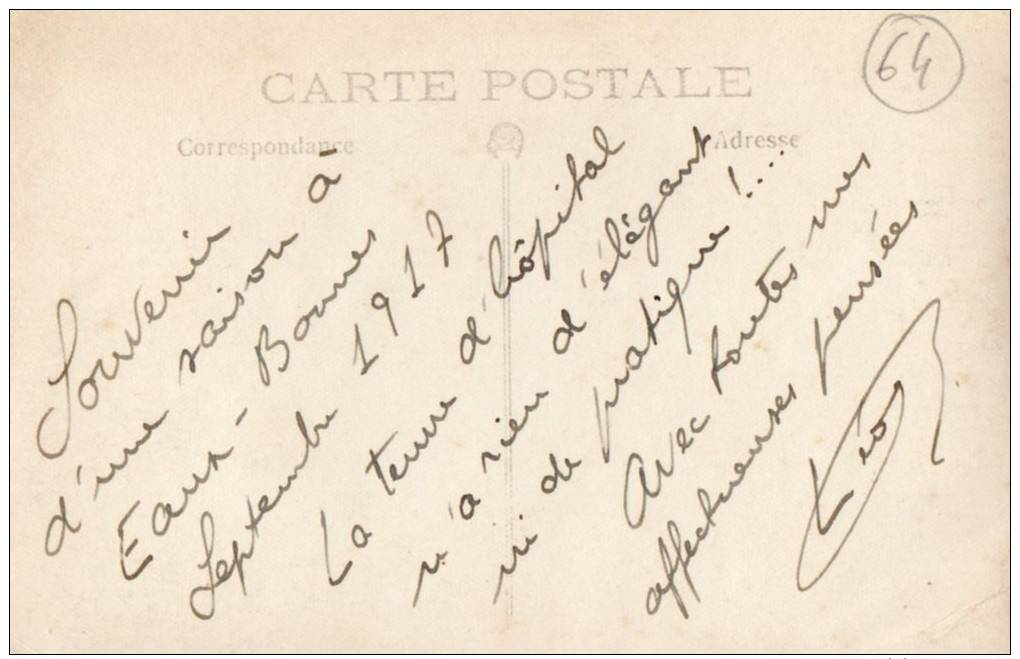 CARTE POSTALE
64
Correspondance
Adresse
Souvenir
d'une saison à
Eaux-Bonnes
Septembre 1917
La tenue d'hôpital
n'a rien d'élégant
ni de pratique !...
Avec toutes mes
affectueuses pensées